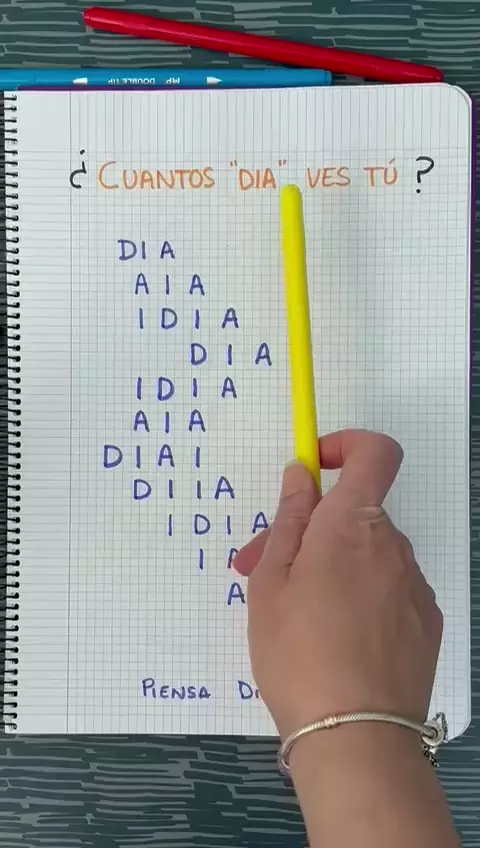 MP. DOUBLE TIP
¿ CUANTOS "DIA" VES TÚ ?
DIA
A I A
I D I A
D I A
I D I A
A I A
D I A I
D I I A
I D I A
I
A
PIENSA